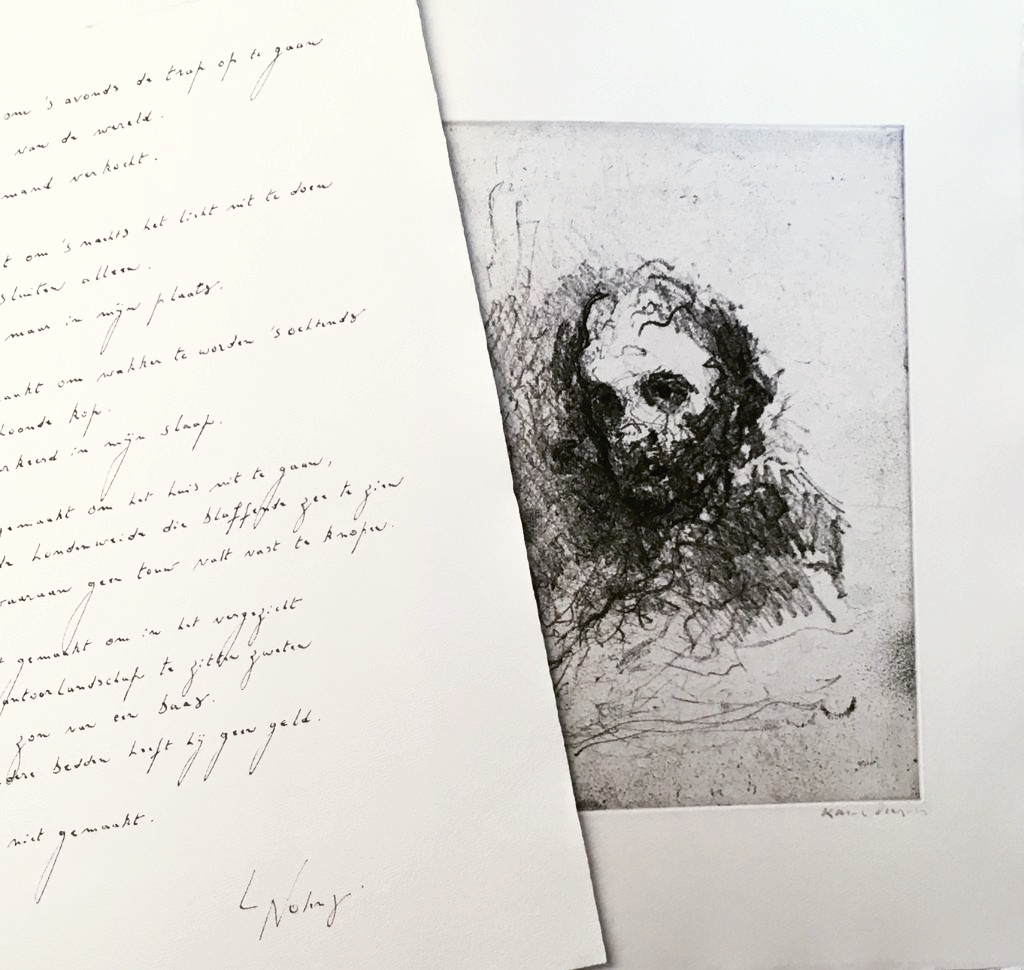 om 's avonds de trap op te gaan
van de wereld.
mand verkocht.
t om 's nachts het licht uit te doen
sluiten alleen.
maar in mijn plaats.
aakt om wakker te worden 's ochtends
loonde kop.
rkeerd in mijn slaap.
gemaakt om het huis uit te gaan,
de hondenweide die blaffende zee te zien
waaraan geen touw valt vast te knopen.
t gemaakt om in het vergezicht
antoorlandschap te zitten zweten
zon van een baas.
dere bedden heeft hij geen geld.
niet gemaakt.
L Nolens.